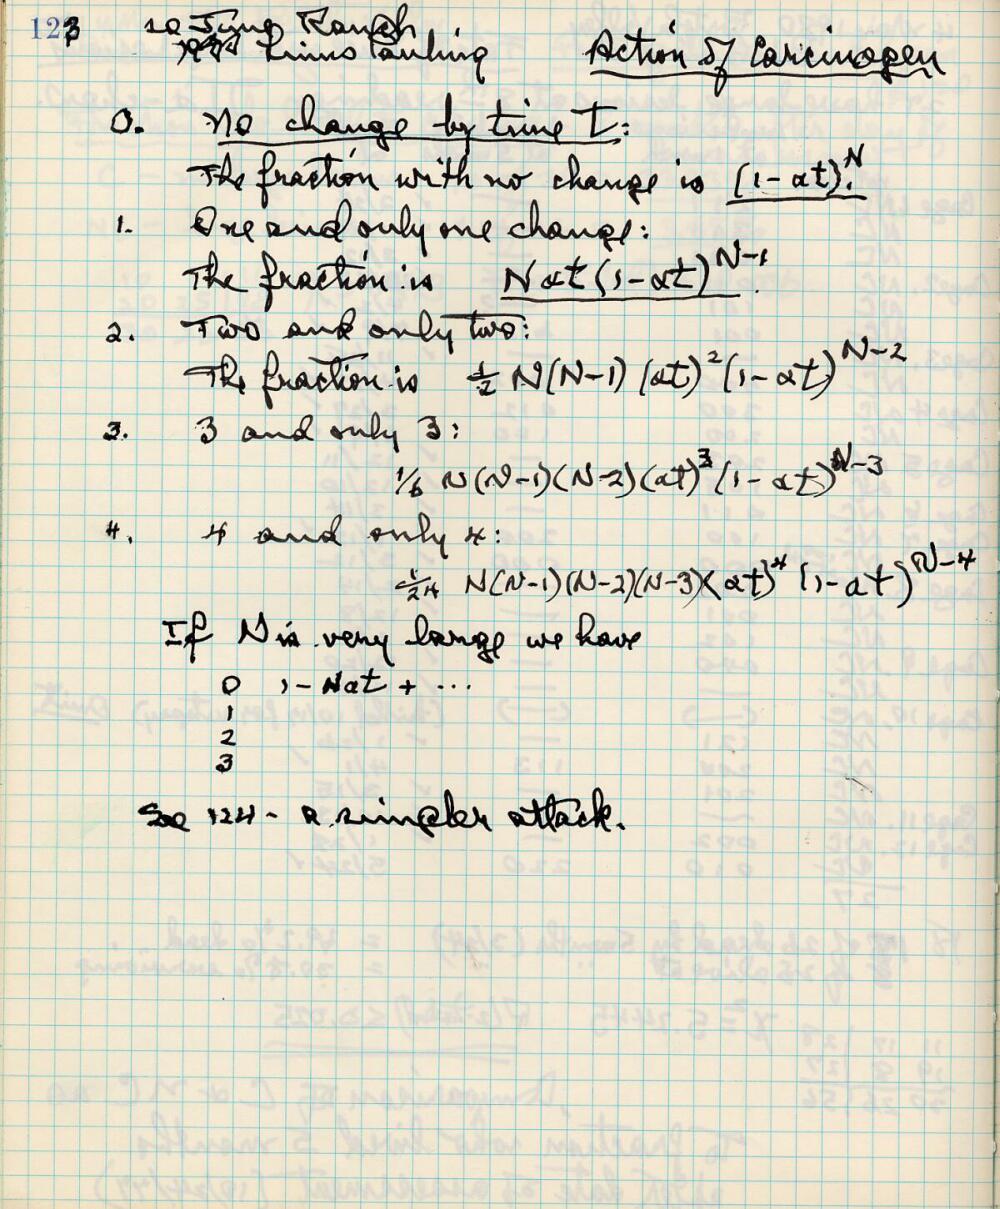 123 20 June Ranch
1979 Linus Pauling Action of Carcinogen
0. No change by time t:
The fraction with no change is (1-αt)^N.
1. One and only one change:
The fraction is Nαt(1-αt)^N-1.
2. Two and only two:
The fraction is 1/2 N(N-1) (αt)^2 (1-αt)^N-2
3. 3 and only 3:
1/6 N(N-1)(N-2)(αt)^3 (1-αt)^N-3
4. 4 and only 4:
1/24 N(N-1)(N-2)(N-3)(αt)^4 (1-αt)^N-4
If N is very large we have
0 1-Nαt + ...
1
2
3
See 124 - a simpler attack.